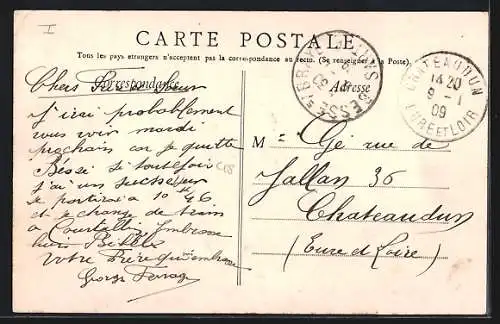 I
CARTE POSTALE
Tous les pays étrangers n'acceptent pas la correspondance au recto. (Se renseigner à la Poste).
Correspondance
Adresse
Chers Frère & Sœur
J'irai probablement
vous voir mardi
prochain car je quitte
Béssé si toutefois
j'ai un successeur
je partirai à 10 h 46
et je change de train
à Courtalin Embrasse
bien
Votre Frère qui embrasse
Georges
BRAYE
BESSÉ
CHATEAUDUN
14 20
9 - 1
09
EURE ET LOIR
M Gé rue de
Jallan 36
Chateaudun
(Eure et Loire)